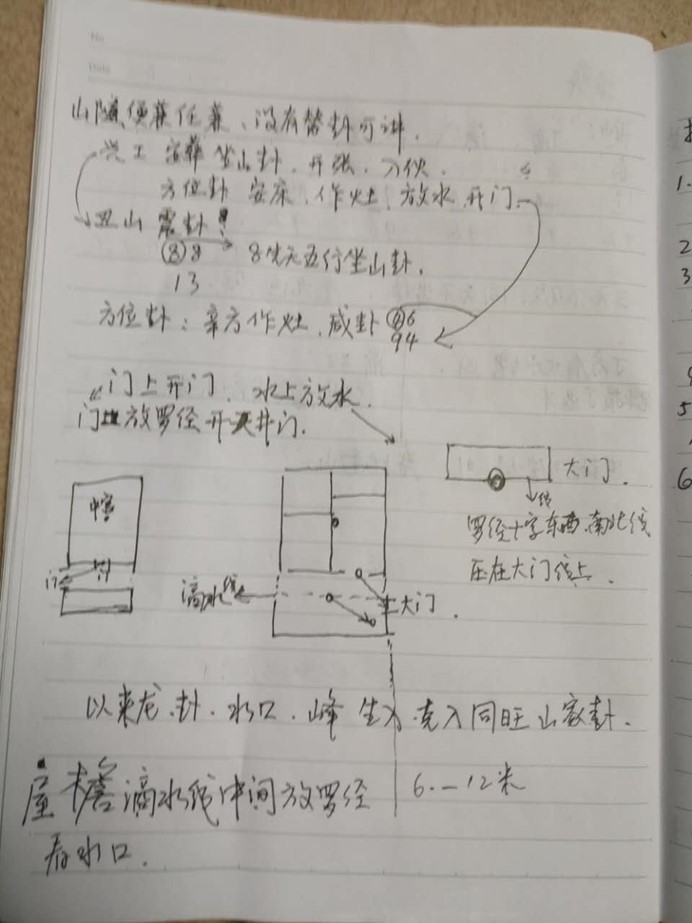 No
Date
山随便兼任兼、没有替卦可讲.
兴工 安葬 坐山卦. 开张. 入伙.
方位卦 安床. 作灶. 放水. 开门.
丑山 震卦
⑧8 8先天五行坐山卦.
13
方位卦：辛方作灶. 咸卦 ④6
94
门上开门. 水上放水.
门上放罗经开天井门.
中宫
门
滴水线
大门
大门.
线
罗经十字东西.南北线
压在大门线上.
以来龙.卦.水口.峰 生入.克入同旺山家卦.
屋檐滴水线中间放罗经
6.—12米
看水口.
1.
2
3
5
6